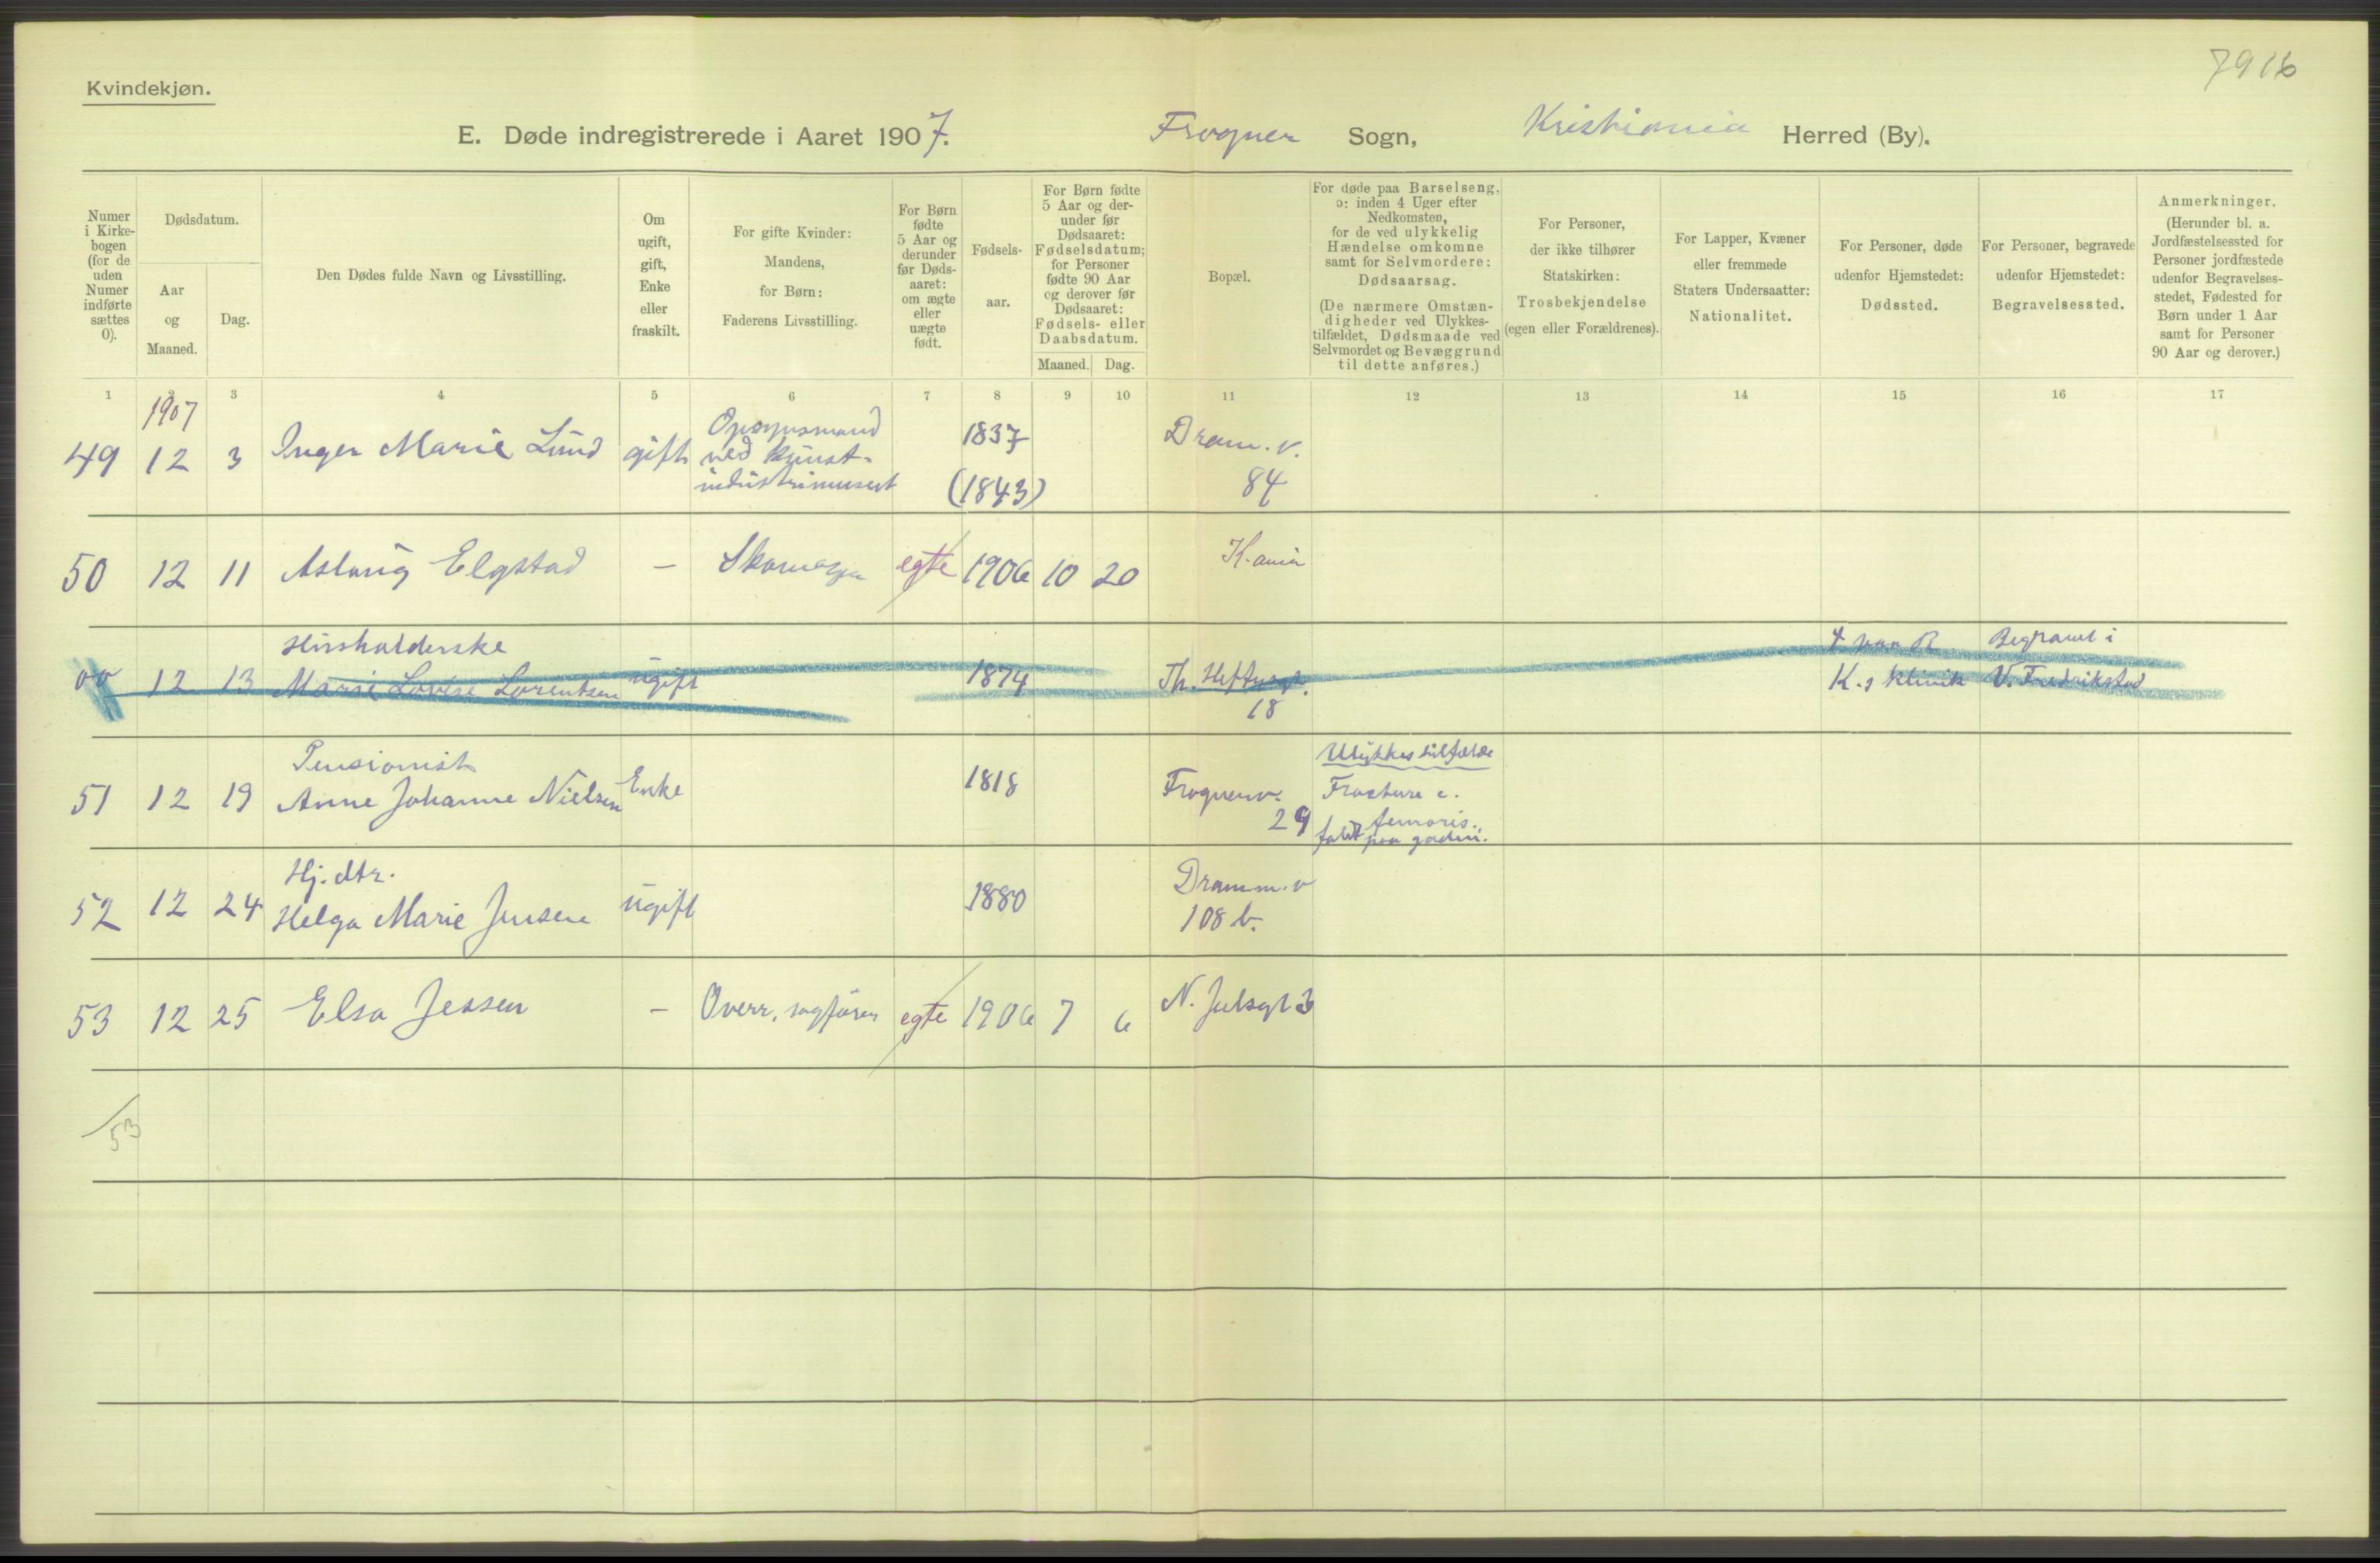 7916
Kvindekjøn.
E. Døde indregistrerede i Aaret 1907. Frogner Sogn, Kristiania Herred (By).
Numer
i Kirke-
bogen
(for de
uden
Numer
indførte
sættes
0).
Dødsdatum.
Aar
og
Maaned.
Dag.
Den Dødes fulde Navn og Livsstilling.
Om
ugift,
gift,
Enke
eller
fraskilt.
For gifte Kvinder:
Mandens,
for Børn:
Faderens Livsstilling.
For Børn
fødte
5 Aar og
derunder
før Døds-
aaret:
om ægte
eller
uægte
født.
Fødsels-
aar.
For Børn fødte
5 Aar og der-
under før
Dødsaaret:
Fødselsdatum;
for Personer
fødte 90 Aar
og derover før
Dødsaaret:
Fødsels- eller
Daabsdatum.
Maaned. Dag.
Bopæl.
For døde paa Barselseng,
ɔ: inden 4 Uger efter
Nedkomsten,
for de ved ulykkelig
Hændelse omkomne
samt for Selvmordere:
Dødsaarsag.
(De nærmere Omstæn-
digheder ved Ulykkes-
tilfældet, Dødsmaade ved
Selvmordet og Bevæggrund
til dette anføres.)
For Personer,
der ikke tilhører
Statskirken:
Trosbekjendelse
(egen eller Forældrenes).
For Lapper, Kvæner
eller fremmede
Staters Undersaatter:
Nationalitet.
For Personer, døde
udenfor Hjemstedet:
Dødssted.
For Personer, begravede
udenfor Hjemstedet:
Begravelsessted.
Anmerkninger.
(Herunder bl. a.
Jordfæstelsessted for
Personer jordfæstede
udenfor Begravelses-
stedet, Fødested for
Børn under 1 Aar
samt for Personer
90 Aar og derover.)
1 2 3 4 5 6 7 8 9 10 11 12 13 14 15 16 17
1907
49 12 3 Inger Marie Lund gift Opsynsmand
ved kunst-
industrimuseet
1837
(1843)
Dram. v.
84
50 12 11 Aslaug Elgstad - Skomager egte 1906 10 20 K.ania
Husholderske
00 12 13 Marie Lovise Lorentsen ugift 1874 Th. Heftyesgt.
18
K.s klinik
Begravet i
V. Fredrikstad
Pensionist
51 12 19 Anne Johanne Nielsen Enke 1818 Frognerv.
29
Ulykkestilfælde
Fracture c.
femoris.
faldt paa gaden.
Hj. dtr.
52 12 24 Helga Marie Jensen ugift 1880 Dramm. v
108 b.
53 12 25 Elsa Jessen - Overr. sagfører egte 1906 7 6 N. Julsgt 3
53